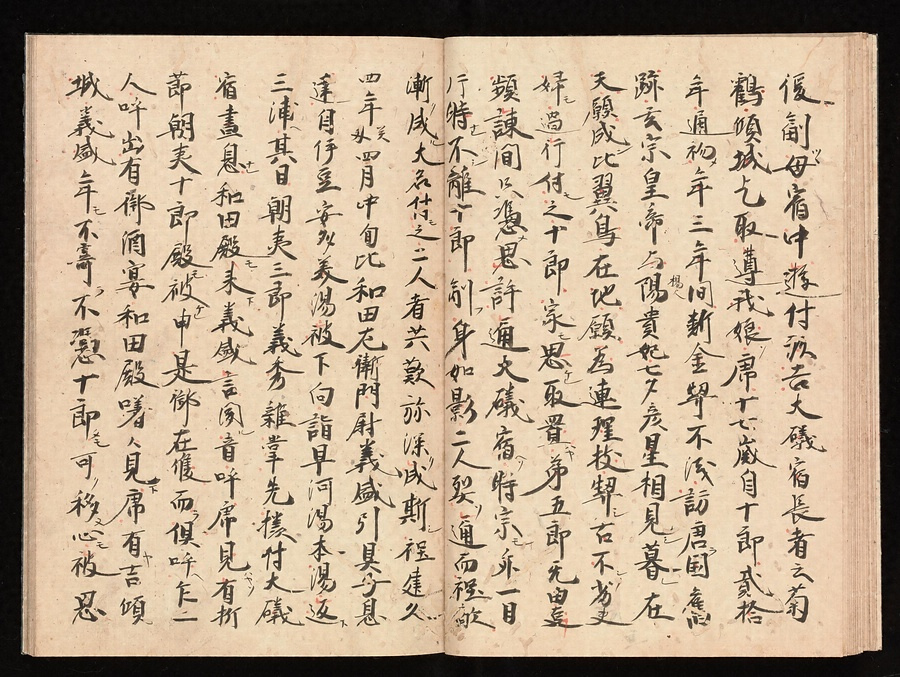 後副母宿中遊付預吉大礒宿長者云菊
鶴傾城乞取遵我娘席十七歳自十郎貳拾
年通初年三年間斷金契不淺訪唐国舊
跡玄宗皇帝与楊貴妃七夕彦星相見暮在
天願成比翼鳥在地願為連理枝契右不劣更
婦過行付之十郎家思取置第五郎无由是
頻諫間只憑思許通大礒宿時宗乖一目
片時不離十郎副身如影二人契通而程敵
漸成大名付之二人者共歎弥深成斯程建久
四年癸丑四月中旬比和田左衛門尉義盛引具子息
達自伊豆安多美湯被下向詣早河湯本湯返
三浦其日朝夷三郎義秀雜掌先様付大礒
宿盡息和田殿来義盛言国音呼席見有折
節朝夷十郎殿被申是御在僅而倶呼乍一
人呼出有御酒宴和田殿嘖々見席有吉傾
城義盛年不寄不憑十郎可移心被思